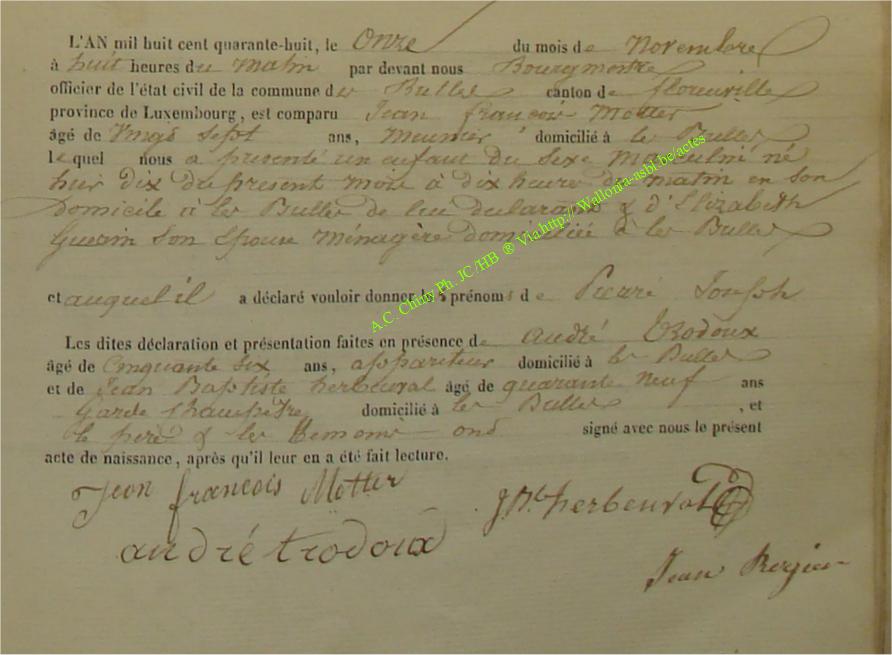 L'AN mil huit cent quarante-huit, le Onze du mois de Novembre
à huit heures du Matin par devant nous Bourgmestre
officier de l'état civil de la commune des Bulles canton de florenville
province de Luxembourg, est comparu Jean françois Motter
âgé de Vingt Sept ans, Meunier domicilié à les Bulles
lequel nous a présenté un enfant du Sexe Masculin né
hier dix du présent mois à dix heure du matin en son
domicile à les Bulles de lui déclarant & d'Elizabeth
Guerin Son Epouse Ménagère domiciliée à les Bulles
et auquel il a déclaré vouloir donner les prénoms de Pierre Joseph
Les dites déclaration et présentation faites en présence de andré trodoux
âgé de Cinquante Six ans, appariteur domicilié à les Bulles
et de Jean Baptiste herbeuval âgé de quarante neuf ans
Garde Champêtre domicilié à les Bulles, et
le père & les temoins ond signé avec nous le présent
acte de naissance, après qu'il leur en a été fait lecture.
Jean françois Mötter
J Bte herbeuval
andré trodoux
Jean
A.C. Chiny Ph. JC /HB ® Via http:// Wallonia-asbl.be/actes